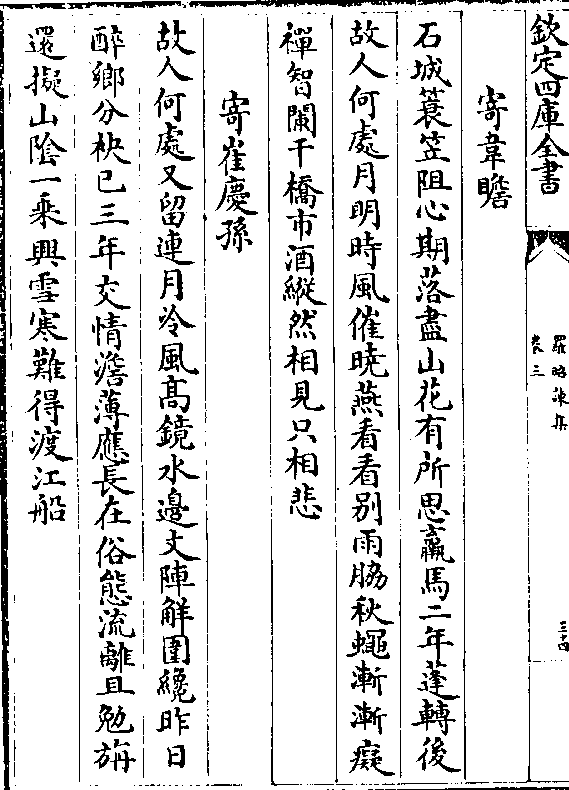 欽定四庫全書
羅昭諫集
卷三
三十四
寄韋瞻
石城蓑笠阻心期落盡山花有所思羸馬二年蓬轉後
故人何處月明時風催曉燕看看别雨脇秋蠅漸漸癡
禪智闌干橋市酒縱然相見只相悲
寄崔慶孫
故人何處又留連月冷風髙鏡水邊文陣解圍纔昨日
醉鄉分袂已三年交情澹薄應長在俗態流離且勉旃
還擬山隂一乗興雪寒難得渡江船